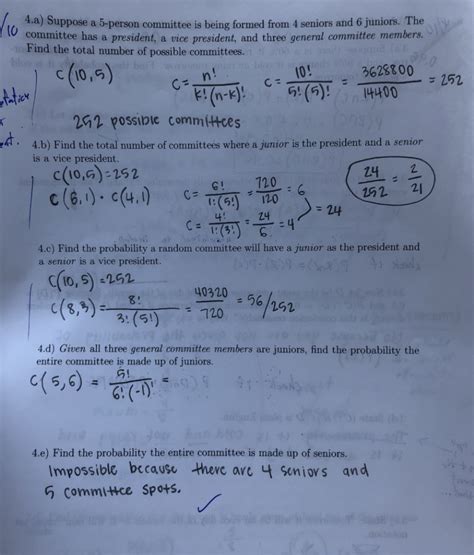 /10
4.a) Suppose a 5-person committee is being formed from 4 seniors and 6 juniors. The
committee has a president, a vice president, and three general committee members.
Find the total number of possible committees.
C(10,5) C = n! / k!(n-k)! C = 10! / 5!(5)! = 3628800 / 14400 = 252
252 possible committees
4.b) Find the total number of committees where a junior is the president and a senior
is a vice president.
C(10,5) = 252
C(6,1) · C(4,1) C = 6! / 1!(5!) = 720 / 120 = 6
C = 4! / 1!(3!) = 24 / 6 = 4 = 24
24 / 252 = 2 / 21
4.c) Find the probability a random committee will have a junior as the president and
a senior is a vice president.
C(10,5) = 252
C(8,3) = 8! / 3!(5!) = 40320 / 720 = 56/252
4.d) Given all three general committee members are juniors, find the probability the
entire committee is made up of juniors.
C(5,6) = 5! / 6!(-1)! =
4.e) Find the probability the entire committee is made up of seniors.
Impossible because there are 4 seniors and
5 committee spots.